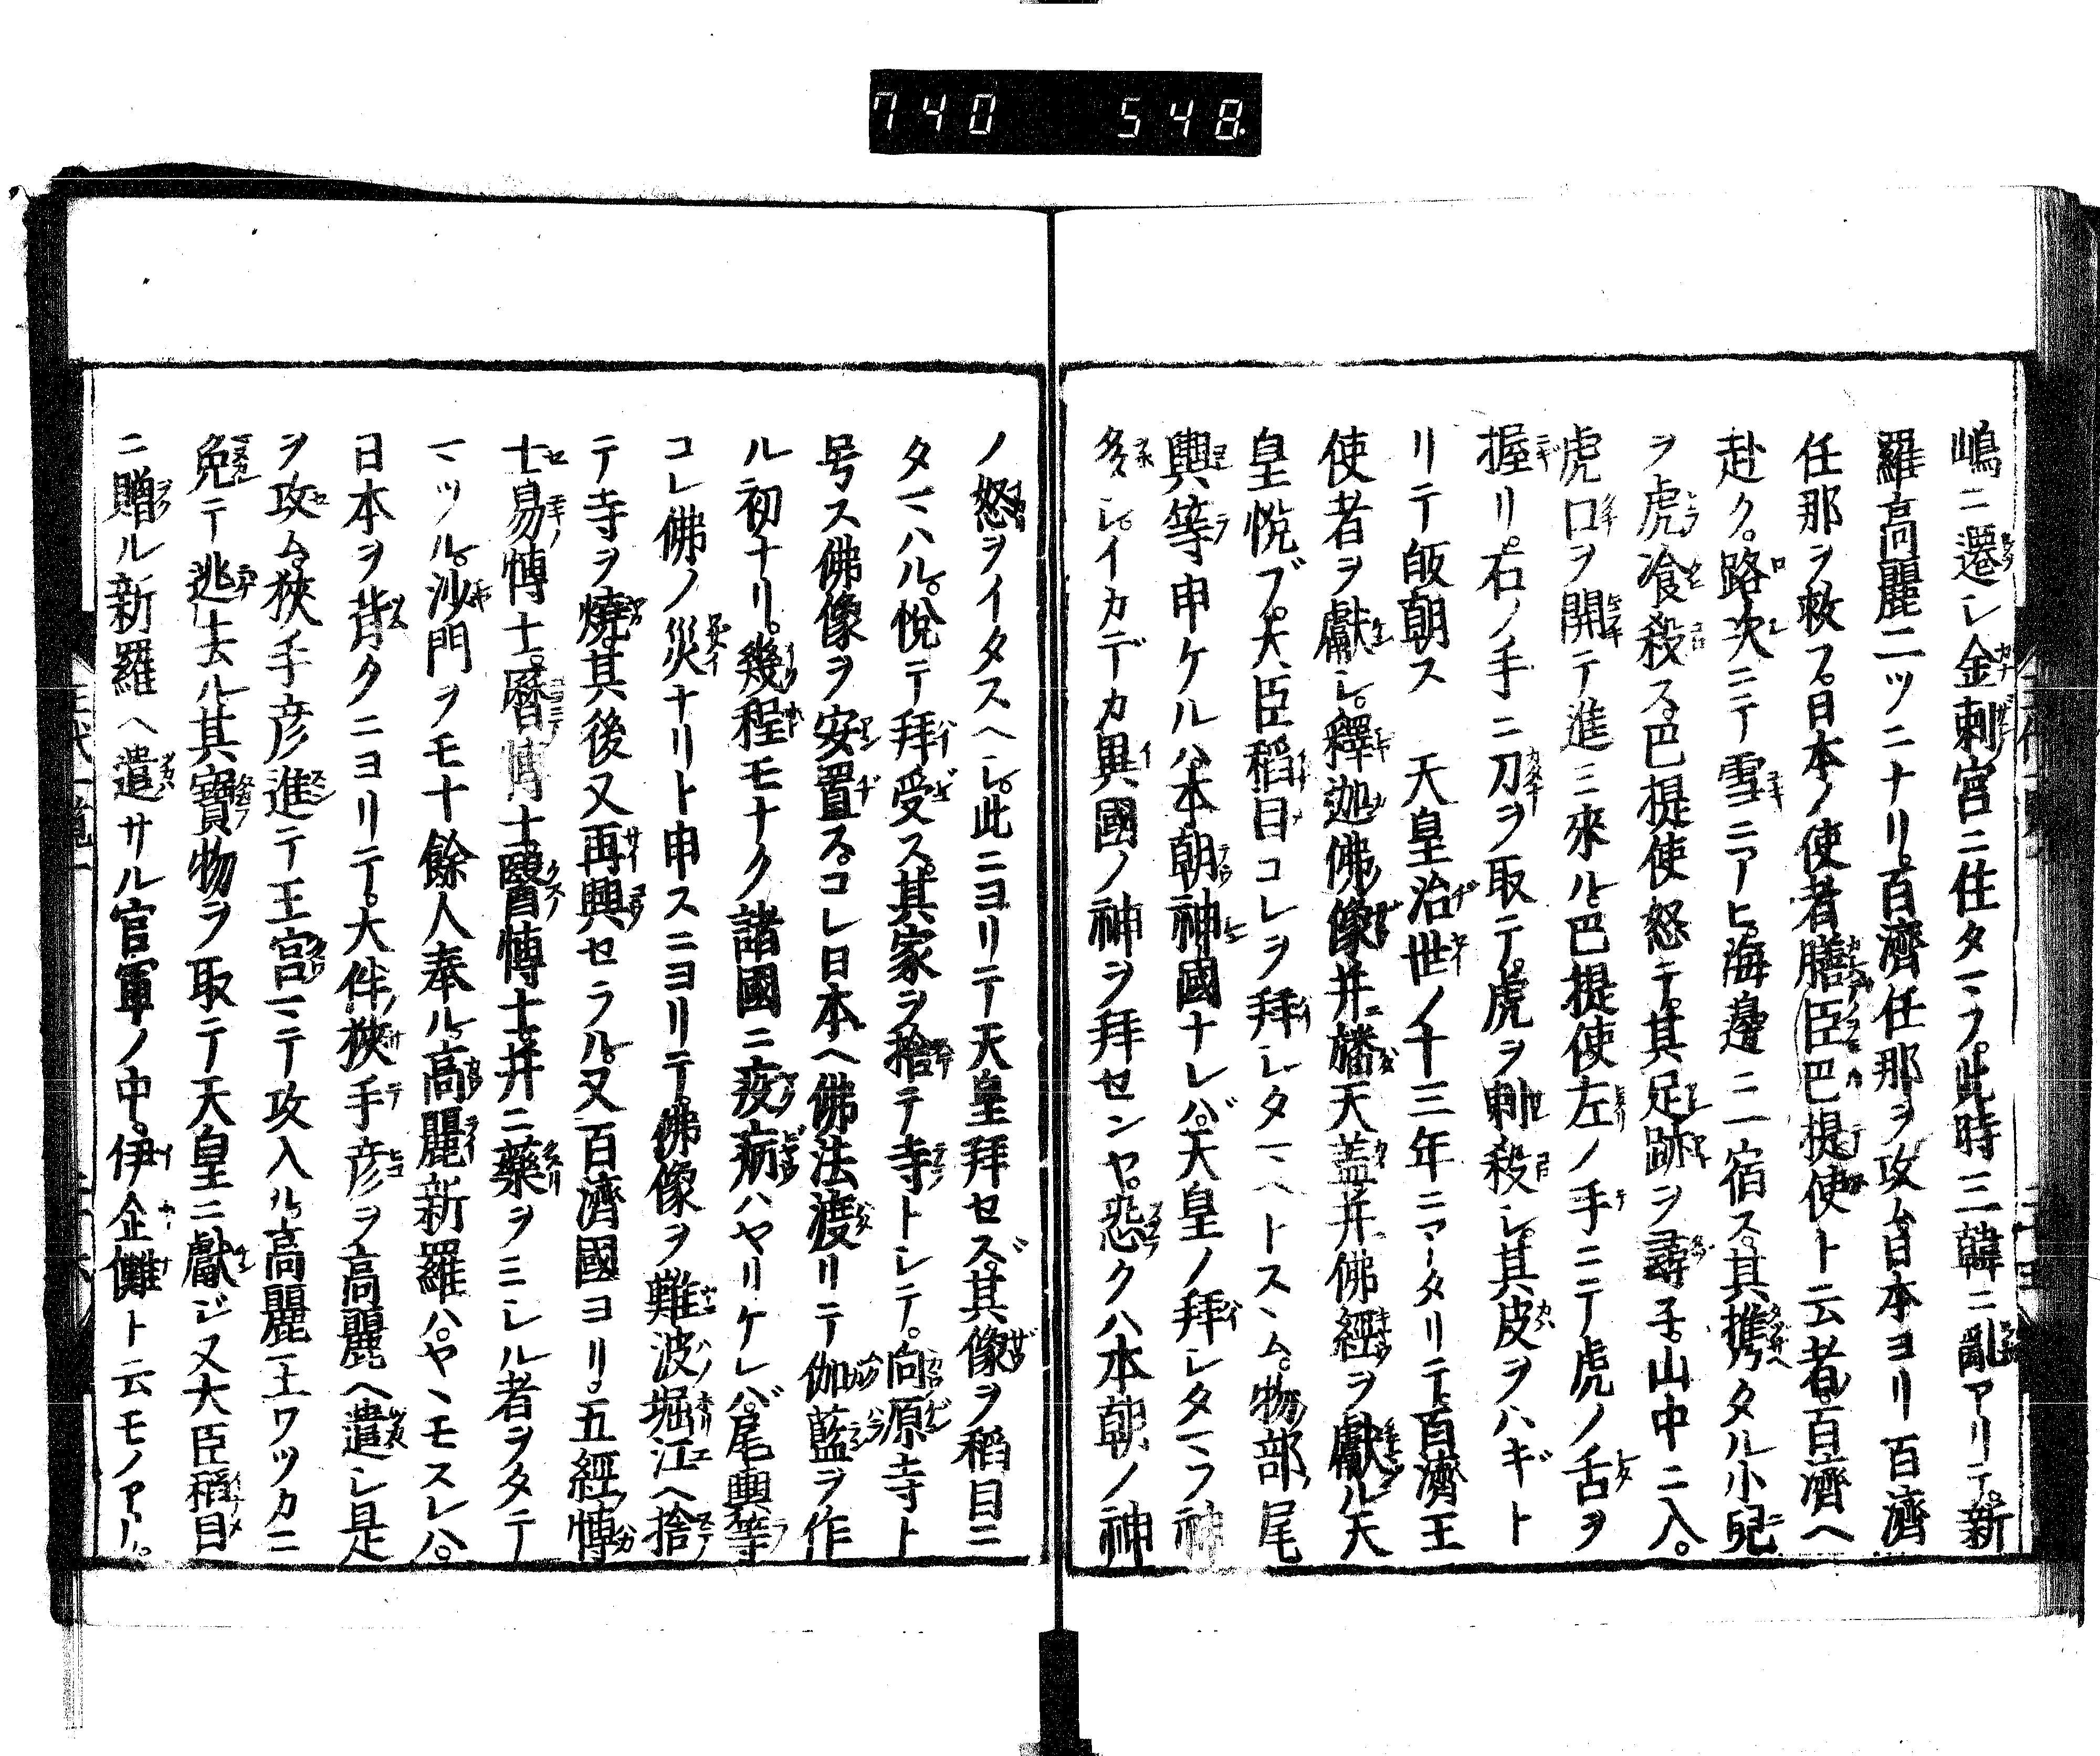 740 548.
嶋ニ遷シ金刺宮ニ住タマフ。此時三韓ニ亂アリテ。新
羅高麗二ツニナリ。百濟任那ヲ攻ム。日本ヨリ百濟
任那ヲ救フ。日本ノ使者膳臣巴提使ト云者。百濟ヘ
赴ク。路次ニテ雪ニアヒ。海邊ニ一宿ス。其攜タル小兒
ヲ虎飡殺ス。巴提使怒テ。其足跡ヲ尋子。山中ニ入。
虎口ヲ開テ進ミ來ル。巴提使左ノ手ニテ虎ノ舌ヲ
握リ。右ノ手ニ刀ヲ取テ。虎ヲ刺殺シ。其皮ヲハギト
リテ皈朝ス 天皇治世ノ十三年ニアータリテ。百濟王
使者ヲ獻シ。釋迦佛像并ニ旛天蓋并ニ佛經ヲ獻ル。天
皇悅ブ。大臣稻目コレヲ拜シタマヘトスヽム。物部尾
輿等申ケルハ。本朝神國ナレバ。天皇ノ拜シタマフ神
多シ。イカデカ異國ノ神ヲ拜センヤ。恐クハ本朝ノ神
ノ怒ヲイタスヘシ。此ニヨリテ天皇拜セズ。其像ヲ稻目ニ
タマハル。悅テ拜受ス。其家ヲ捨テ寺トシテ。向原寺ト
号ス佛像ヲ安置ス。コレ日本ヘ佛法渡リテ伽藍ヲ作
ル初ナリ。幾程モナク諸國ニ疫病ハヤリケレバ。尾輿等
コレ佛ノ災ナリト申スニヨリテ。佛像ヲ難波堀江ヘ捨
テ寺ヲ燒。其後又再興セラル。又百濟國ヨリ。五經博
士易博士。曆博士。醫博士。并ニ藥ヲミシル者ヲタテ
マツル。沙門ヲモ十餘人奉ル。高麗新羅ハ。ヤヽモスレハ。
日本ヲ背タニヨリテ。大伴狹手彦ヲ高麗ヘ遣シ是
ヲ攻ム。狹手彦進テ王宮マテ攻入ル。高麗王ワツカニ
免テ逃去ル。其寶物ヲ取テ天皇ニ獻ジ又大臣稻目
ニ贈ル新羅ヘ遣サル官軍ノ中。伊企儺ト云モノアリ。